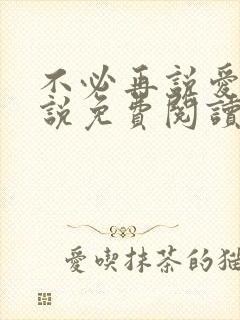 不必再説愛
説免費閱讀
愛喫抹茶的猫